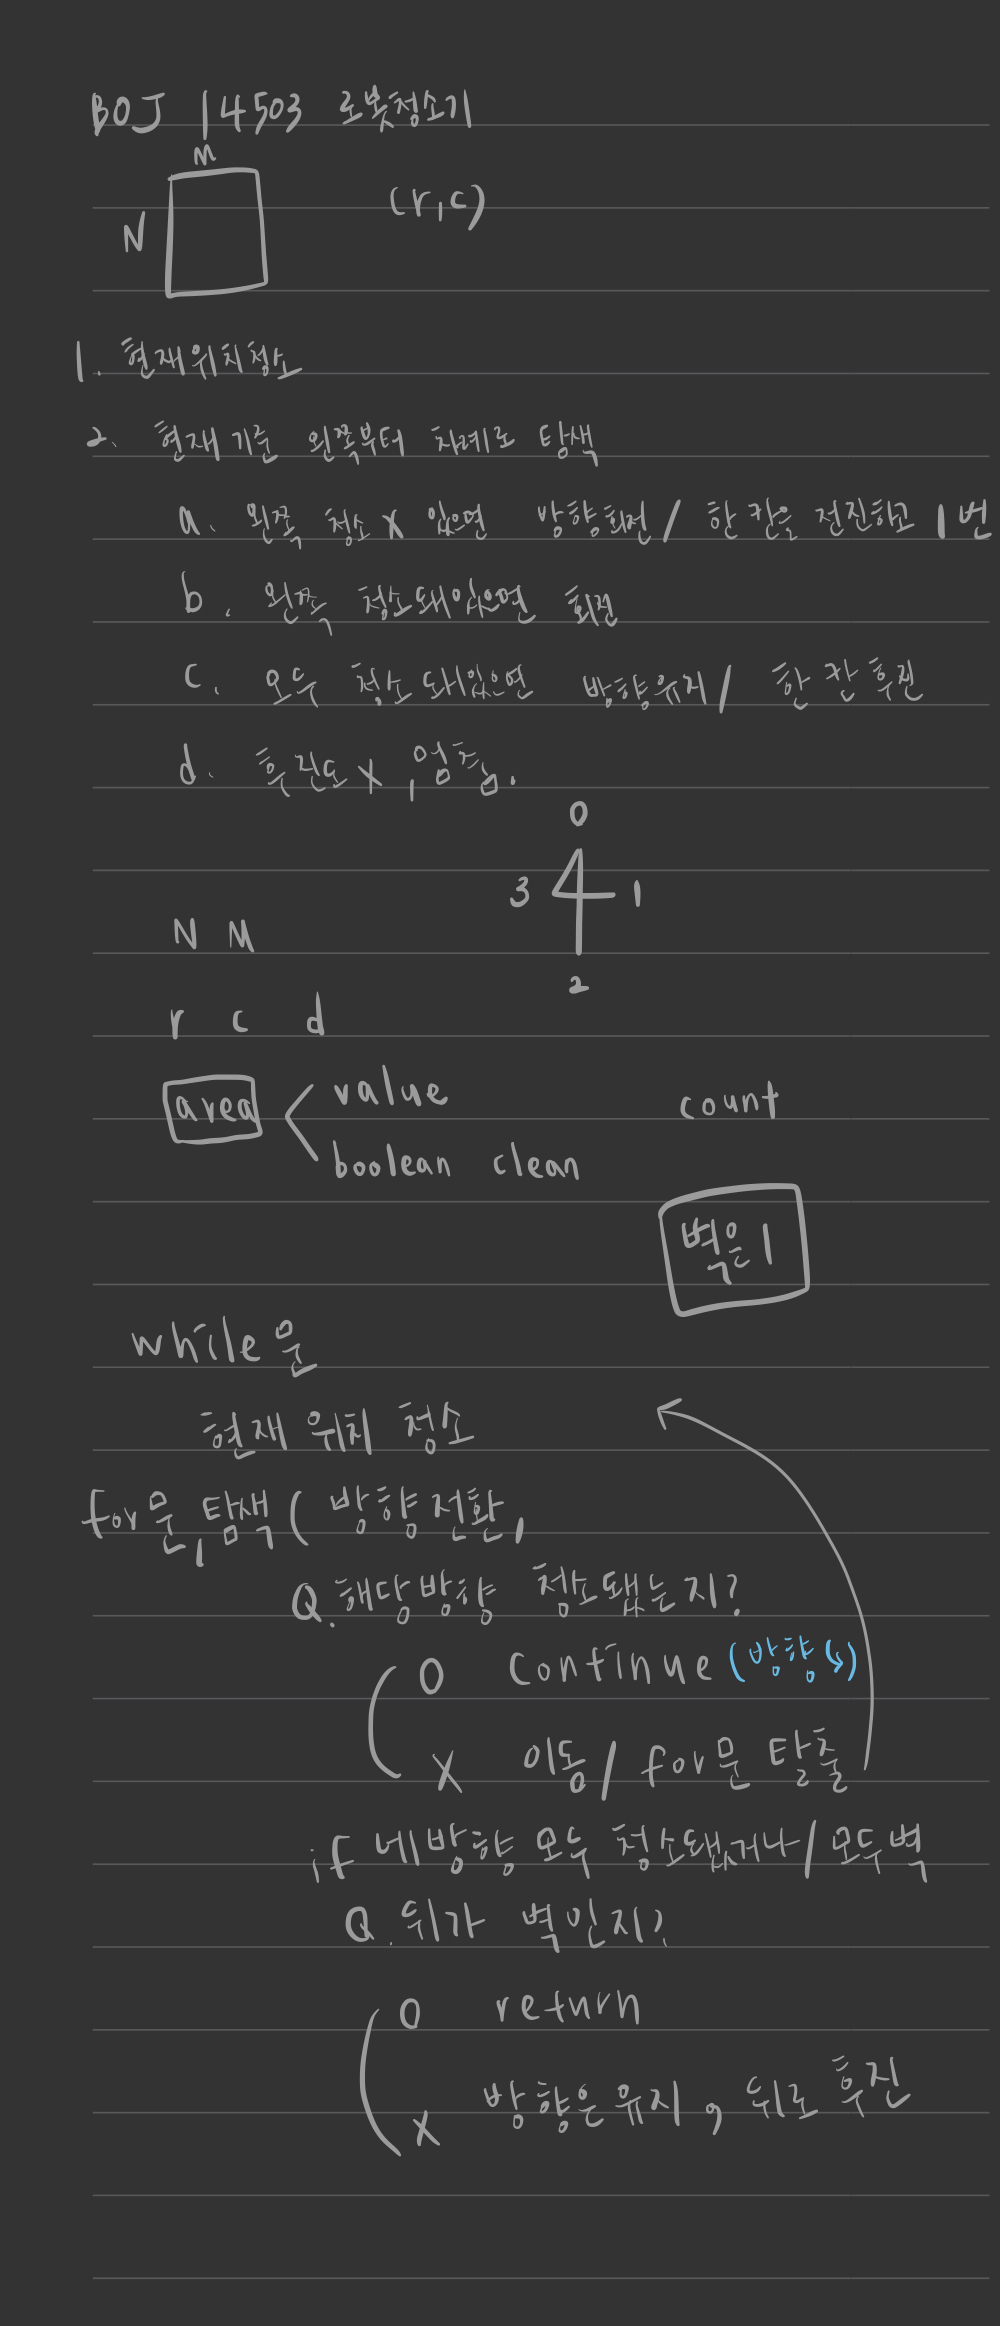 BOJ 14503 로봇청소기
M
N (r,c)
1. 현재위치청소
2. 현재 기준 왼쪽부터 차례로 탐색
a. 왼쪽 청소 X 있으면 방향회전 / 한 칸을 전진하고 1번
b. 왼쪽 청소돼있으면 회전
c. 모두 청소돼있으면 방향유지 / 한 칸 후진
d. 후진도 X, 멈춤.
0
3 1
2
N M
r c d
area value count
boolean clean
벽은 1
while문
현재 위치 청소
for문, 탐색 ( 방향전환,
Q. 해당방향 청소됐는지?
O continue (방향↳)
X 이동 / for문 탈출
if 네방향 모두 청소됐거나 / 모두벽
Q. 뒤가 벽인지?
O return
X 방향은 유지, 뒤로 후진